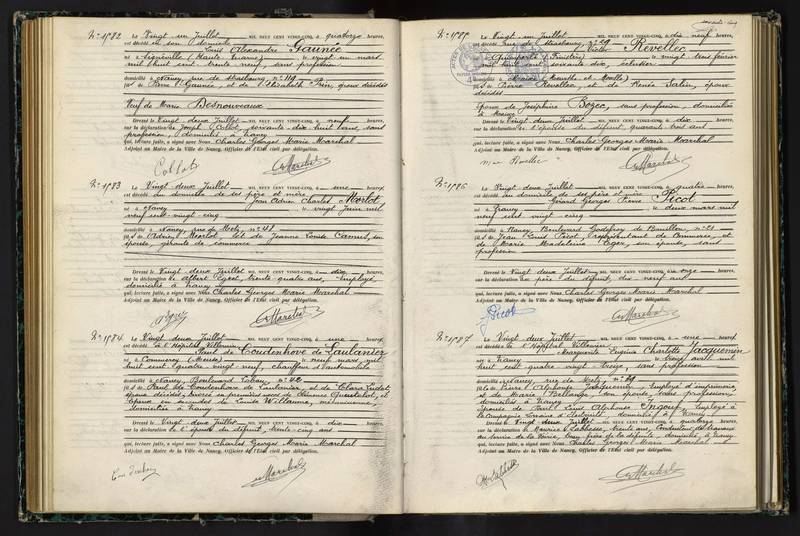 No 1982
Le Vingt un Juillet MIL NEUF CENT VINGT-CINQ, à quatorze heures,
est décédé en son domicile
Louis Alexandre Gaunée
né à Signéville (Haute Marne) le vingt un mars
mil huit cent trente neuf, sans profession
domicilié à Nancy, rue de Strasbourg, no 119
fils de Pierre Gaunée, et de Elisabeth Prin, époux décédés
Veuf de Marie Desnouveaux
Devant le Vingt-deux Juillet MIL NEUF CENT VINGT-CINQ, à neuf heures,
sur la déclaration de Joseph Collot, soixante-dix huit ans, sans
profession, domicilié à Nancy
qui, lecture faite, a signé avec Nous Charles Georges Marie Marchal
Adjoint au Maire de la Ville de Nancy, Officier de l'Etat civil par délégation.
Collot
No 1983
Le Vingt deux Juillet MIL NEUF CENT VINGT-CINQ, à une heure,
est décédé au domicile de ses père et mère
Jean Adrien Charles Martot
né à Nancy le vingt Juin mil
neuf cent vingt-cinq
domicilié à Nancy, rue de Metz, no 41
fils de Adrien Martot et de Jeanne Louise Camus, son
épouse, gérante de commerce
Devant le Vingt-deux Juillet MIL NEUF CENT VINGT-CINQ, à dix heures,
sur la déclaration de Albert trente-quatre ans, employé
domicilié à Nancy
qui, lecture faite, a signé avec Nous Charles Georges Marie Marchal
Adjoint au Maire de la Ville de Nancy, Officier de l'Etat civil par délégation.
No 1984
Le Vingt deux Juillet MIL NEUF CENT VINGT-CINQ, à une heure,
est décédé à l'Hôpital Villemin
Paul de Coudenhove de Lautanier
né à Commercy (Meuse) le neuf mars mil
huit cent quatre vingt neuf, chauffeur d'automobile
domicilié à Nancy, Boulevard Lobau, no 42
fils de Paul de Coudenhove de Lautanier, et de Clara
époux décédés, divorcé en premières noces de
époux en secondes de Louise Willaume,
domiciliée à Nancy
Devant le Vingt-deux Juillet MIL NEUF CENT VINGT-CINQ, à dix heures,
sur la déclaration de l'épouse du défunt, trente-cinq ans
qui, lecture faite, a signé avec Nous Charles Georges Marie Marchal
Adjoint au Maire de la Ville de Nancy, Officier de l'Etat civil par délégation.
No 1985
Le Vingt-un Juillet MIL NEUF CENT VINGT-CINQ, à dix neuf heures,
est décédé rue de Strasbourg, no 29
Victor Revellec
né à Quimperlé (Finistère) le vingt trois février
mil huit cent soixante dix,
domicilié à (Meurthe et Moselle)
fils de Pierre Revellec, et de Renée Salin, époux
décédés
époux de Joséphine Bozec, sans profession, domiciliée
à
Devant le Vingt-deux Juillet MIL NEUF CENT VINGT-CINQ, à dix heures,
sur la déclaration de l'épouse du défunt, quarante trois ans
qui, lecture faite, a signé avec Nous Charles Georges Marie Marchal
Adjoint au Maire de la Ville de Nancy, Officier de l'Etat civil par délégation.
No 1986
Le Vingt-deux Juillet MIL NEUF CENT VINGT-CINQ, à quatre heures,
est décédé au domicile de ses père et mère
Gérard Georges Pierre Picot
né à Nancy le deux mars mil
neuf cent vingt-cinq
domicilié à Nancy, Boulevard Godefroy de Bouillon, no 21
fils de Jean Louis Picot, représentant de Commerce, et
de Marie Madeleine Oger, son épouse, sans
profession
Devant le Vingt-deux Juillet MIL NEUF CENT VINGT-CINQ, à onze heures,
sur la déclaration du père du défunt, dix-neuf ans
qui, lecture faite, a signé avec Nous Charles Georges Marie Marchal
Adjoint au Maire de la Ville de Nancy, Officier de l'Etat civil par délégation.
J Picot
No 1987
Le Vingt deux Juillet MIL NEUF CENT VINGT-CINQ, à une heure,
est décédé à l'Hôpital Villemin
Marguerite Eugénie Charlotte Jacquemin
né à Nancy le treize avril mil
huit cent quatre vingt treize, sans profession
domicilié à Nancy, rue de Metz, no 29
fille de Pierre Alphonse Jacquemin, employé d'imprimerie,
et de Marie Bellange, son épouse, sans profession,
domiciliés à Nancy
épouse de Paul Louis Alphonse employé à
la Compagnie Lorraine d'Electricité, domicilié à Nancy
Devant le Vingt deux Juillet MIL NEUF CENT VINGT-CINQ, à quatorze heures,
sur la déclaration de Maurice trente ans, Conducteur de travaux
au service de la Voirie, beau-frère de la défunte, domicilié à Nancy
qui, lecture faite, a signé avec Nous Charles Georges Marie Marchal
Adjoint au Maire de la Ville de Nancy, Officier de l'Etat civil par délégation.